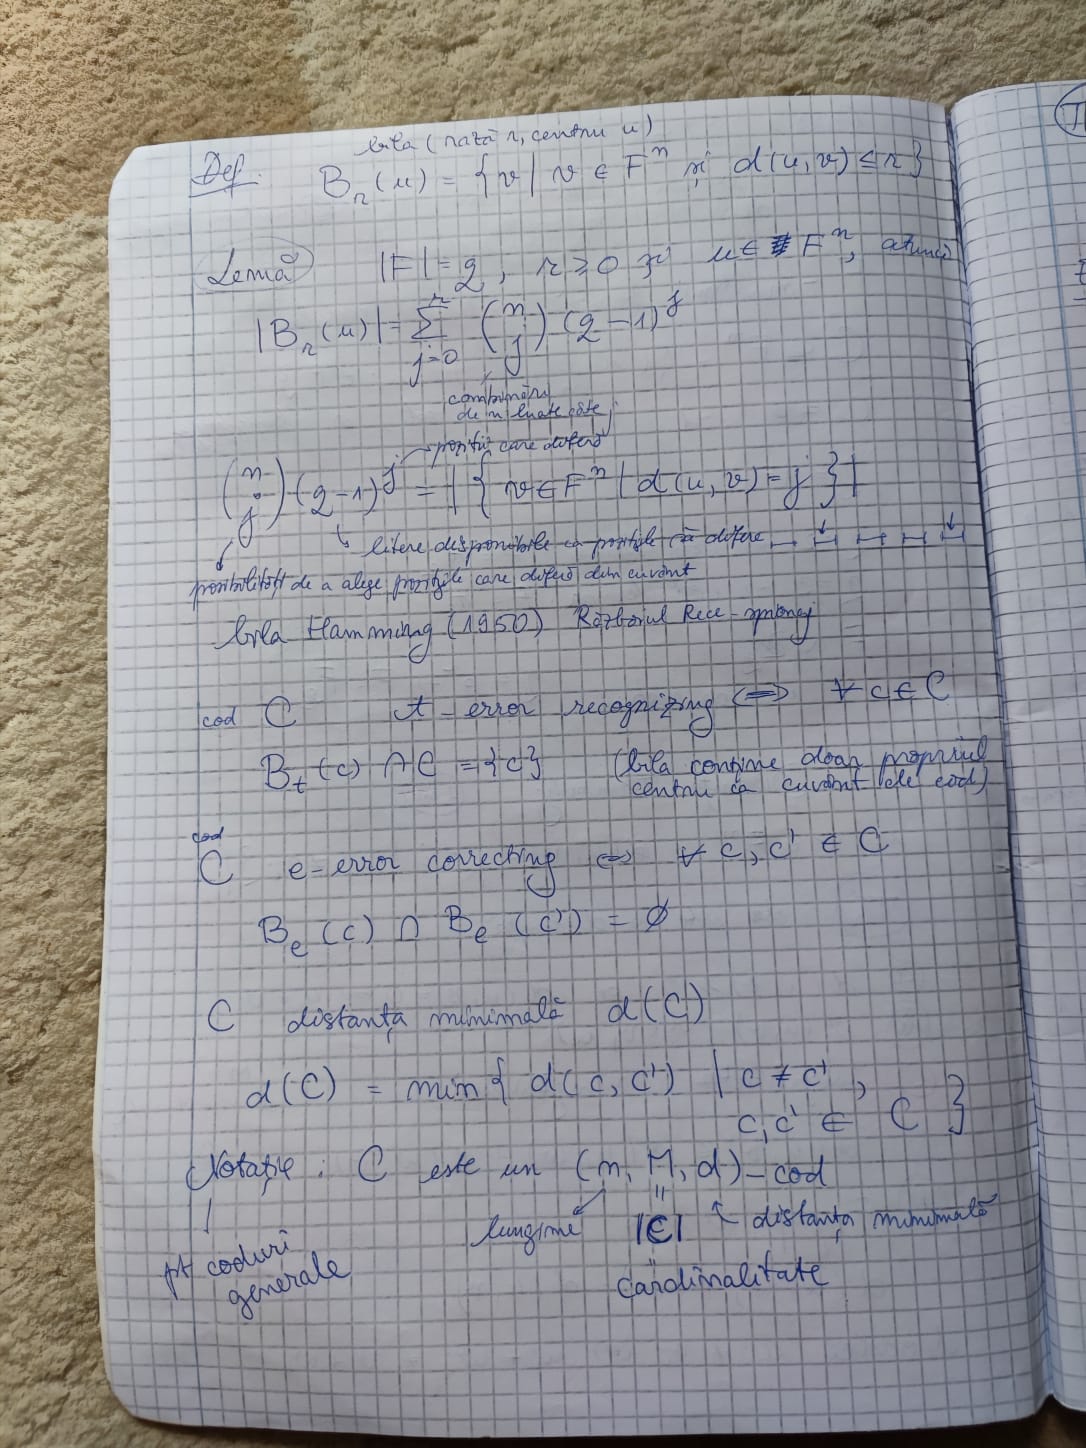 bila (rază r, centru u)
Def. B_r(u) = {v | v ∈ F^n și d(u,v) ≤ r}
Lemă |F| = q, r ≥ 0 și u ∈ F^n, atunci
|B_r(u)| = Σ_{j=0}^{r} (n j) (q-1)^j
combinări
de n luate câte j
poziții care diferă
(n j) (q-1)^j = |{v ∈ F^n | d(u,v) = j}|
litere disponibile ca pozițiile să difere
posibilități de a alege pozițiile care diferă din cuvânt
bila Hamming (1950) Războiul Rece - spionaj
cod C t-error recognizing ⟺ ∀ c ∈ C
B_t(c) ∩ C = {c} (bila conține doar propriul
centru ca cuvânt de cod)
cod
C e-error correcting ⟺ ∀ c, c' ∈ C
B_e(c) ∩ B_e(c') = ∅
C distanța minimală d(C)
d(C) = min{ d(c, c') | c ≠ c',
c, c' ∈ C }
Notație: C este un (n, M, d)-cod
lungime |C| distanța minimală
pt coduri
generale
cardinalitate